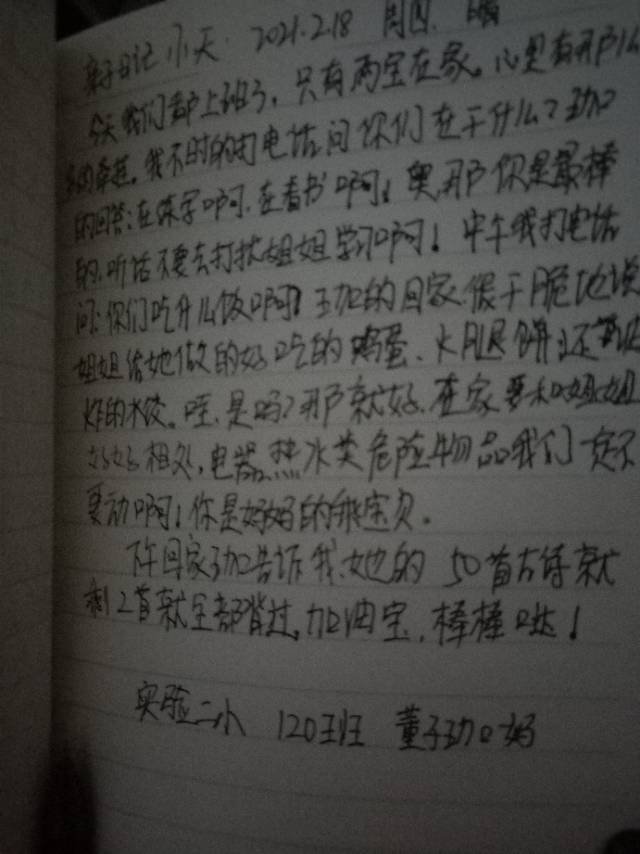 亲子日记 小天. 2021.2.18 周四. 晴
今天我们都上班了,只有两宝在家。心里有那么
的牵挂。我不时的打电话问你们在干什么?子加
的回答:在练字啊.在看书啊!奥.那你是最棒
的.听话不要去打扰姐姐学习啊!中午我打电话
问:你们吃什么饭啊?子加的回答很干脆地说
姐姐给她做的好吃的鸡蛋、火腿饼.还有
炸的水饺。哇.是吗?那就好.在家要和姐姐
好好相处,电器.热水类危险物品我们一定不
要动啊!你是妈妈的乖宝贝。
下午回家子加告诉我.她的50首古诗就
剩2首就全部背过,加油宝.棒棒哒!
实验二小 120班 董子加妈妈